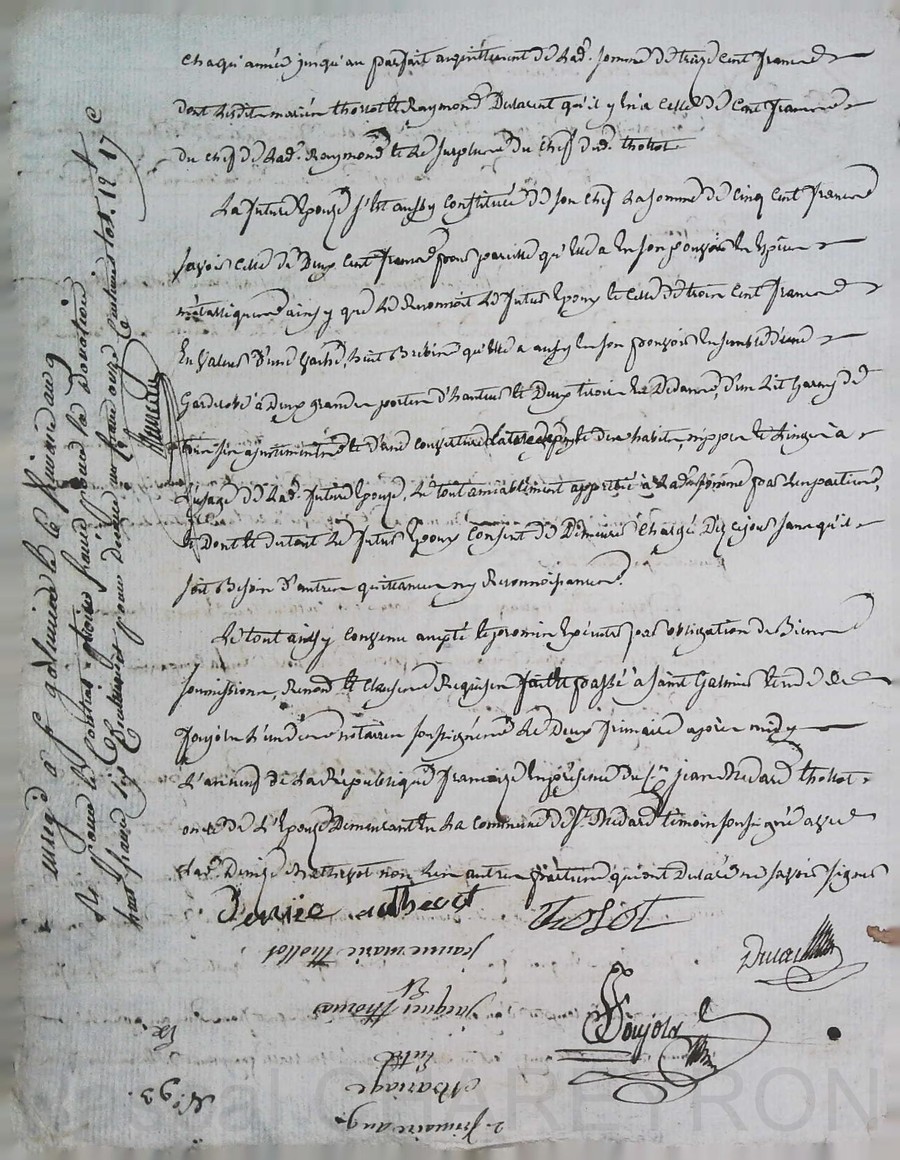 chaqu'année jusqu'au parfait acquittement de lad. somme de treize cent francs
dont lesdits mariés thollot et Raymond declarent qu'il y en a celle de cent francs
du chef de lad. Raymond et le surplus du chef dud. thollot
La future Epouse s'est aussy constituée de son chef la somme de cinq cent francs
savoir celle de deux cent francs pour pareille qu'elle a en son pouvoir en Espèces
métalliques ainsy que le Reconnoit le futur Epoux et celle de trois cent francs
En valeur d'une vache, huit Brebis qu'elle a aussy en son pouvoir ensemble d'une
Garderobe à deux grandes portes d'hauteur et deux tiroirs au dedans, d'un lit Garny de
et d'une couverture de ses habits, nippes et linges à
l'usage de lad. future Epouse, le tout amiablement apprétié à lad. somme par les parties,
et dont et du tout le futur Epoux consent de demeurer chargé dès ce jour sans qu'il
soit Besoin d'autres quittances ny Reconnoissances.
Le tout ainsy convenu accepté et promis Exécuter par obligation de Biens
soumissions, Renon. et clauses Requises fait et passé à Saint Galmier Etude de
Poujola l'un des notaires soussignés le deux frimaire après midy
L'an neuf de la République françoise En présence du Cn. jean Medard thollot
oncle de l'Epouse demeurant En la commune de St. Medard témoin soussigné avec
lad. Denise Mathevot non les autres parties qui ont declaré ne savoir signer
Denise Mathevot
Thollot
Ducai
Poujola
Enrgé à St galmier le 6 frimaire an 9
Re. pour le Contrat trois francs pour la donation
huit francs dix centimes
2. frimaire an 9.
Mariage
Entre
jacques thomas
Et
jeanne marie thollot
N.o 93.
CHAREYRON